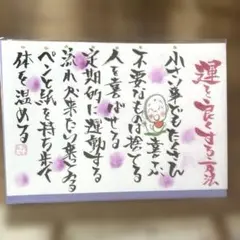 運を良くする言葉
小さい幸せもたくさん喜ぶ
不要なものは捨てる
人を喜ばせる
定期的に運動する
流れが来たい乗となる
ペンと紙を持ち歩く
体を温める